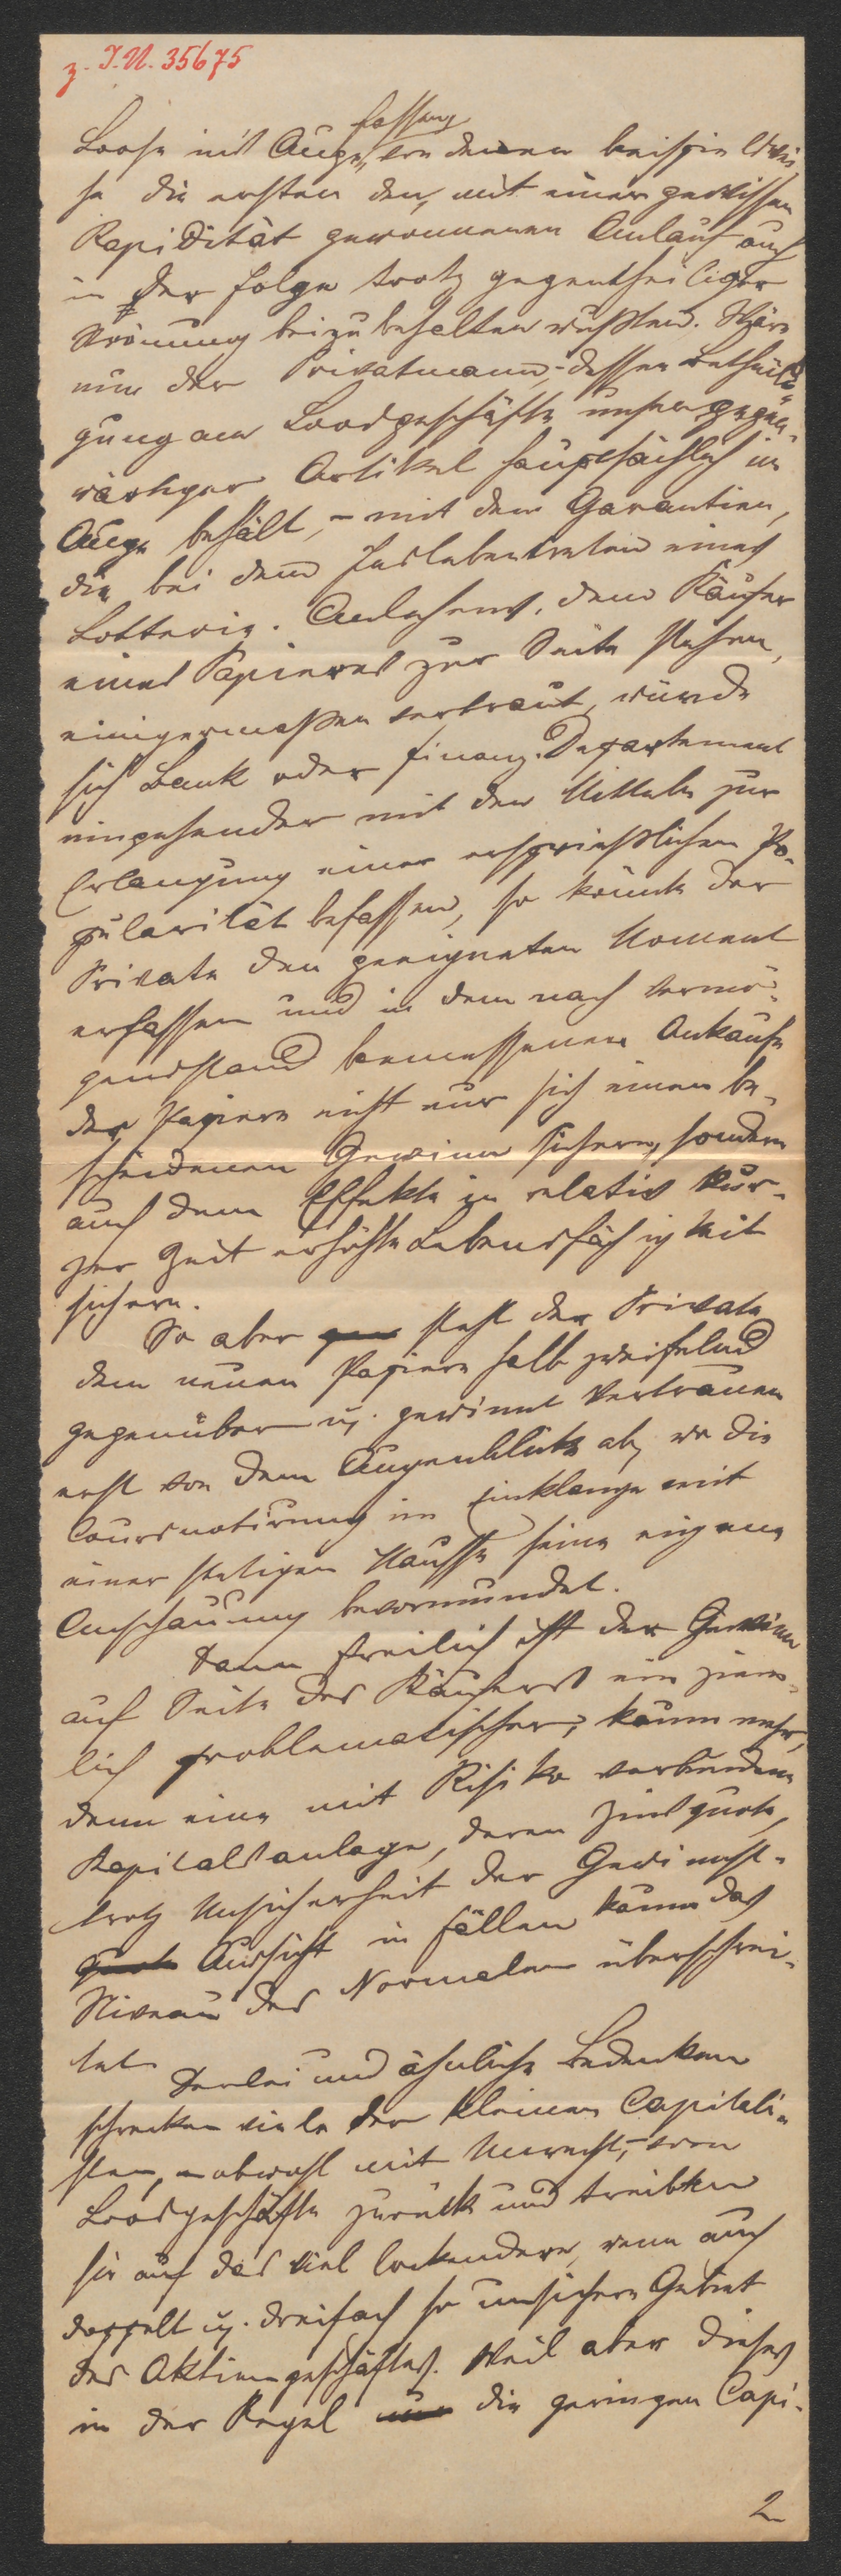 z. I.N. 35675
Loose in's Auge fassend, von denen beispielswei
se die ersten den, mit einer gewissen
Rapidität gewonnenen Anlauf auch
in der Folge trotz gegentheiliger
Strömung beizubehalten wußten. Wäre
nun der Privatmann, – dessen Betheili-
gung am Loosgeschäfte unser gegen-
wärtiger Artikel hauptsächlich im
Auge behält, – mit den Garantien,
die bei dem Inslebentreten eines
Lotterie-Anlehens, dem Käufer
eines Papieres zur Seite stehen,
einigermaßen vertraut, würde
sich Bank oder Finanz-Departement
eingehender mit den Mitteln zur
Erlangung einer ersprießlichen Po-
pularität befassen, so könnte der
Private den geeigneten Moment
erfassen und in dem nach Vermö-
gensstand bemessenen Ankaufe
der Papiere nicht nur sich einen be-
scheidenen Gewinn sichern, sondern
auch dem Effekte in relativ kur-
zer Zeit erhöhte Lebensfähigkeit
sichern.
So aber steht der Private
dem neuen Papiere halb zweifelnd
gegenüber u. gewinnt Vertrauen
erst von dem Augenblicke ab, wo die
Coursnotirung im Einklange mit
einer stetigen Hausse seine eigene
Anschauung bevormundet.
Dann freilich ist der Gewinn
auf Seite des Käufers ein ziem-
lich problematischer, kaum mehr,
denn eine mit Risiko verbundene
Kapitalsanlage, deren Zinsquote,
trotz Unsicherheit der Gewinnst-
Aussicht in Fällen kaum das
Niveau des Normalen überschrei-
tet
Derlei und ähnliche Bedenken
schrecken viele der kleinen Capitali-
sten, – obwohl mit Unrecht, – vom
Loosgeschäfte zurück und treiben
sie auf das viel lockendere, wenn auch
doppelt u. dreifach so unsichere Gebiet
des Aktiengeschäftes. Weil aber dieses
in der Regel die geringen Capi-
2